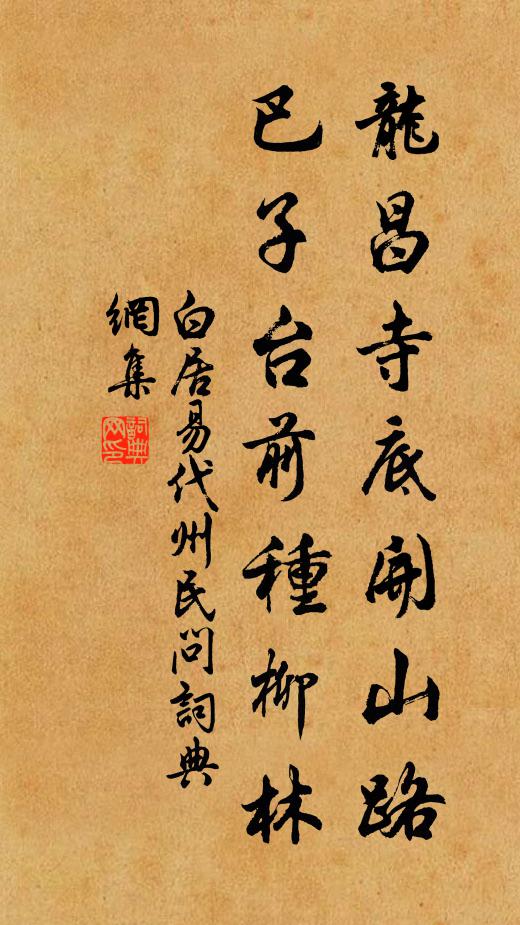 龍昌寺底開山路
巴子台前種柳林
白居易代州民問詞典
網集
詞典網印